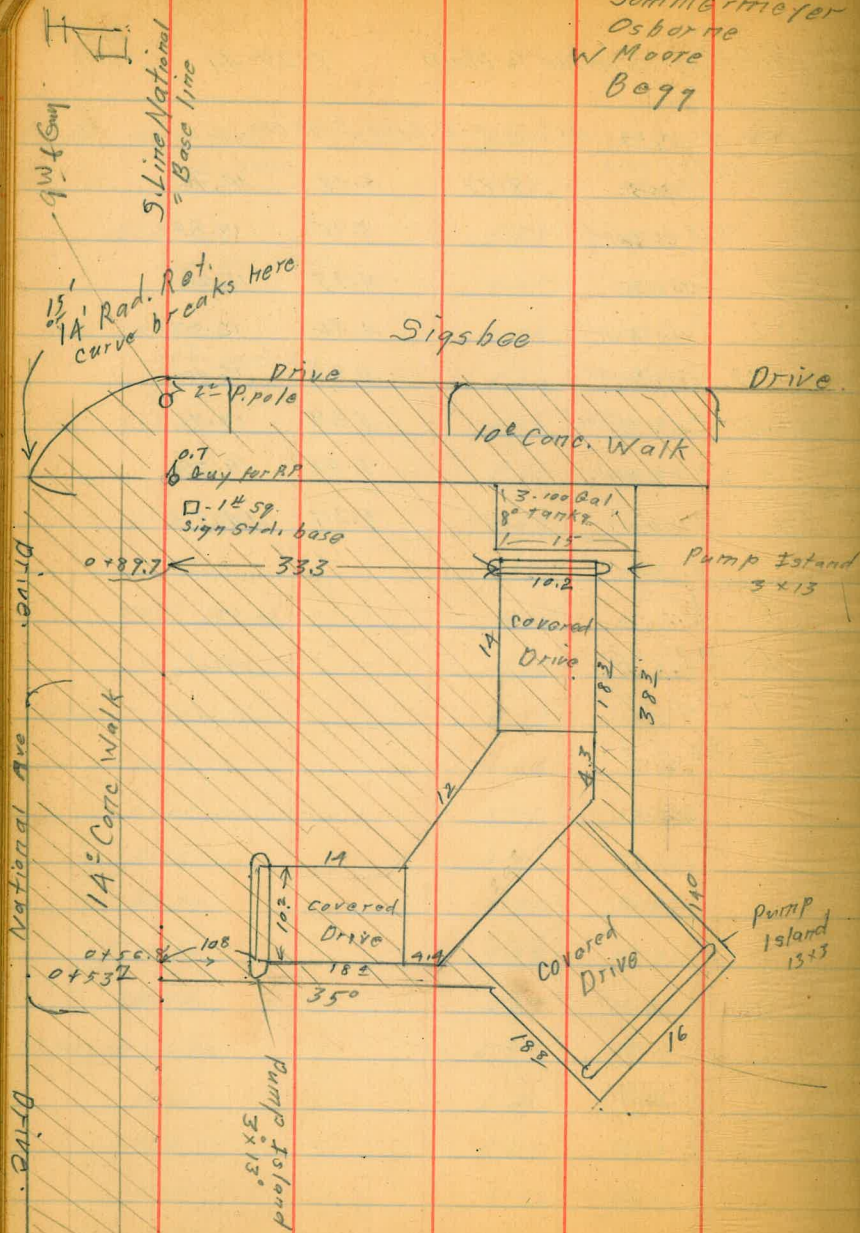 Sommermeyer
Osborne
W Moore
Begg
S. Line National
= Base line
9 W of Guy
15'
or
14' Rad. Ret.
curve breaks here
Sigsbee
Drive
Drive
2º P. pole
10º Conc. Walk
0.7
Guy for P.P.
□ - 1º Sq.
Sign Std. base
3-100 Gal
8º tanks
15
0+89.7
333
10.2
Pump Island
3 x 13
Covered
Drive
14
183
383
4.3
12
Drive
National Ave
14º Conc Walk
14
10.2
Covered
Drive
108
0+56.8
0+537
184
4.4
35º
Covered
Drive
140
Pump
Island
13x3
188
16
Pump Island
3 x 13º
Drive